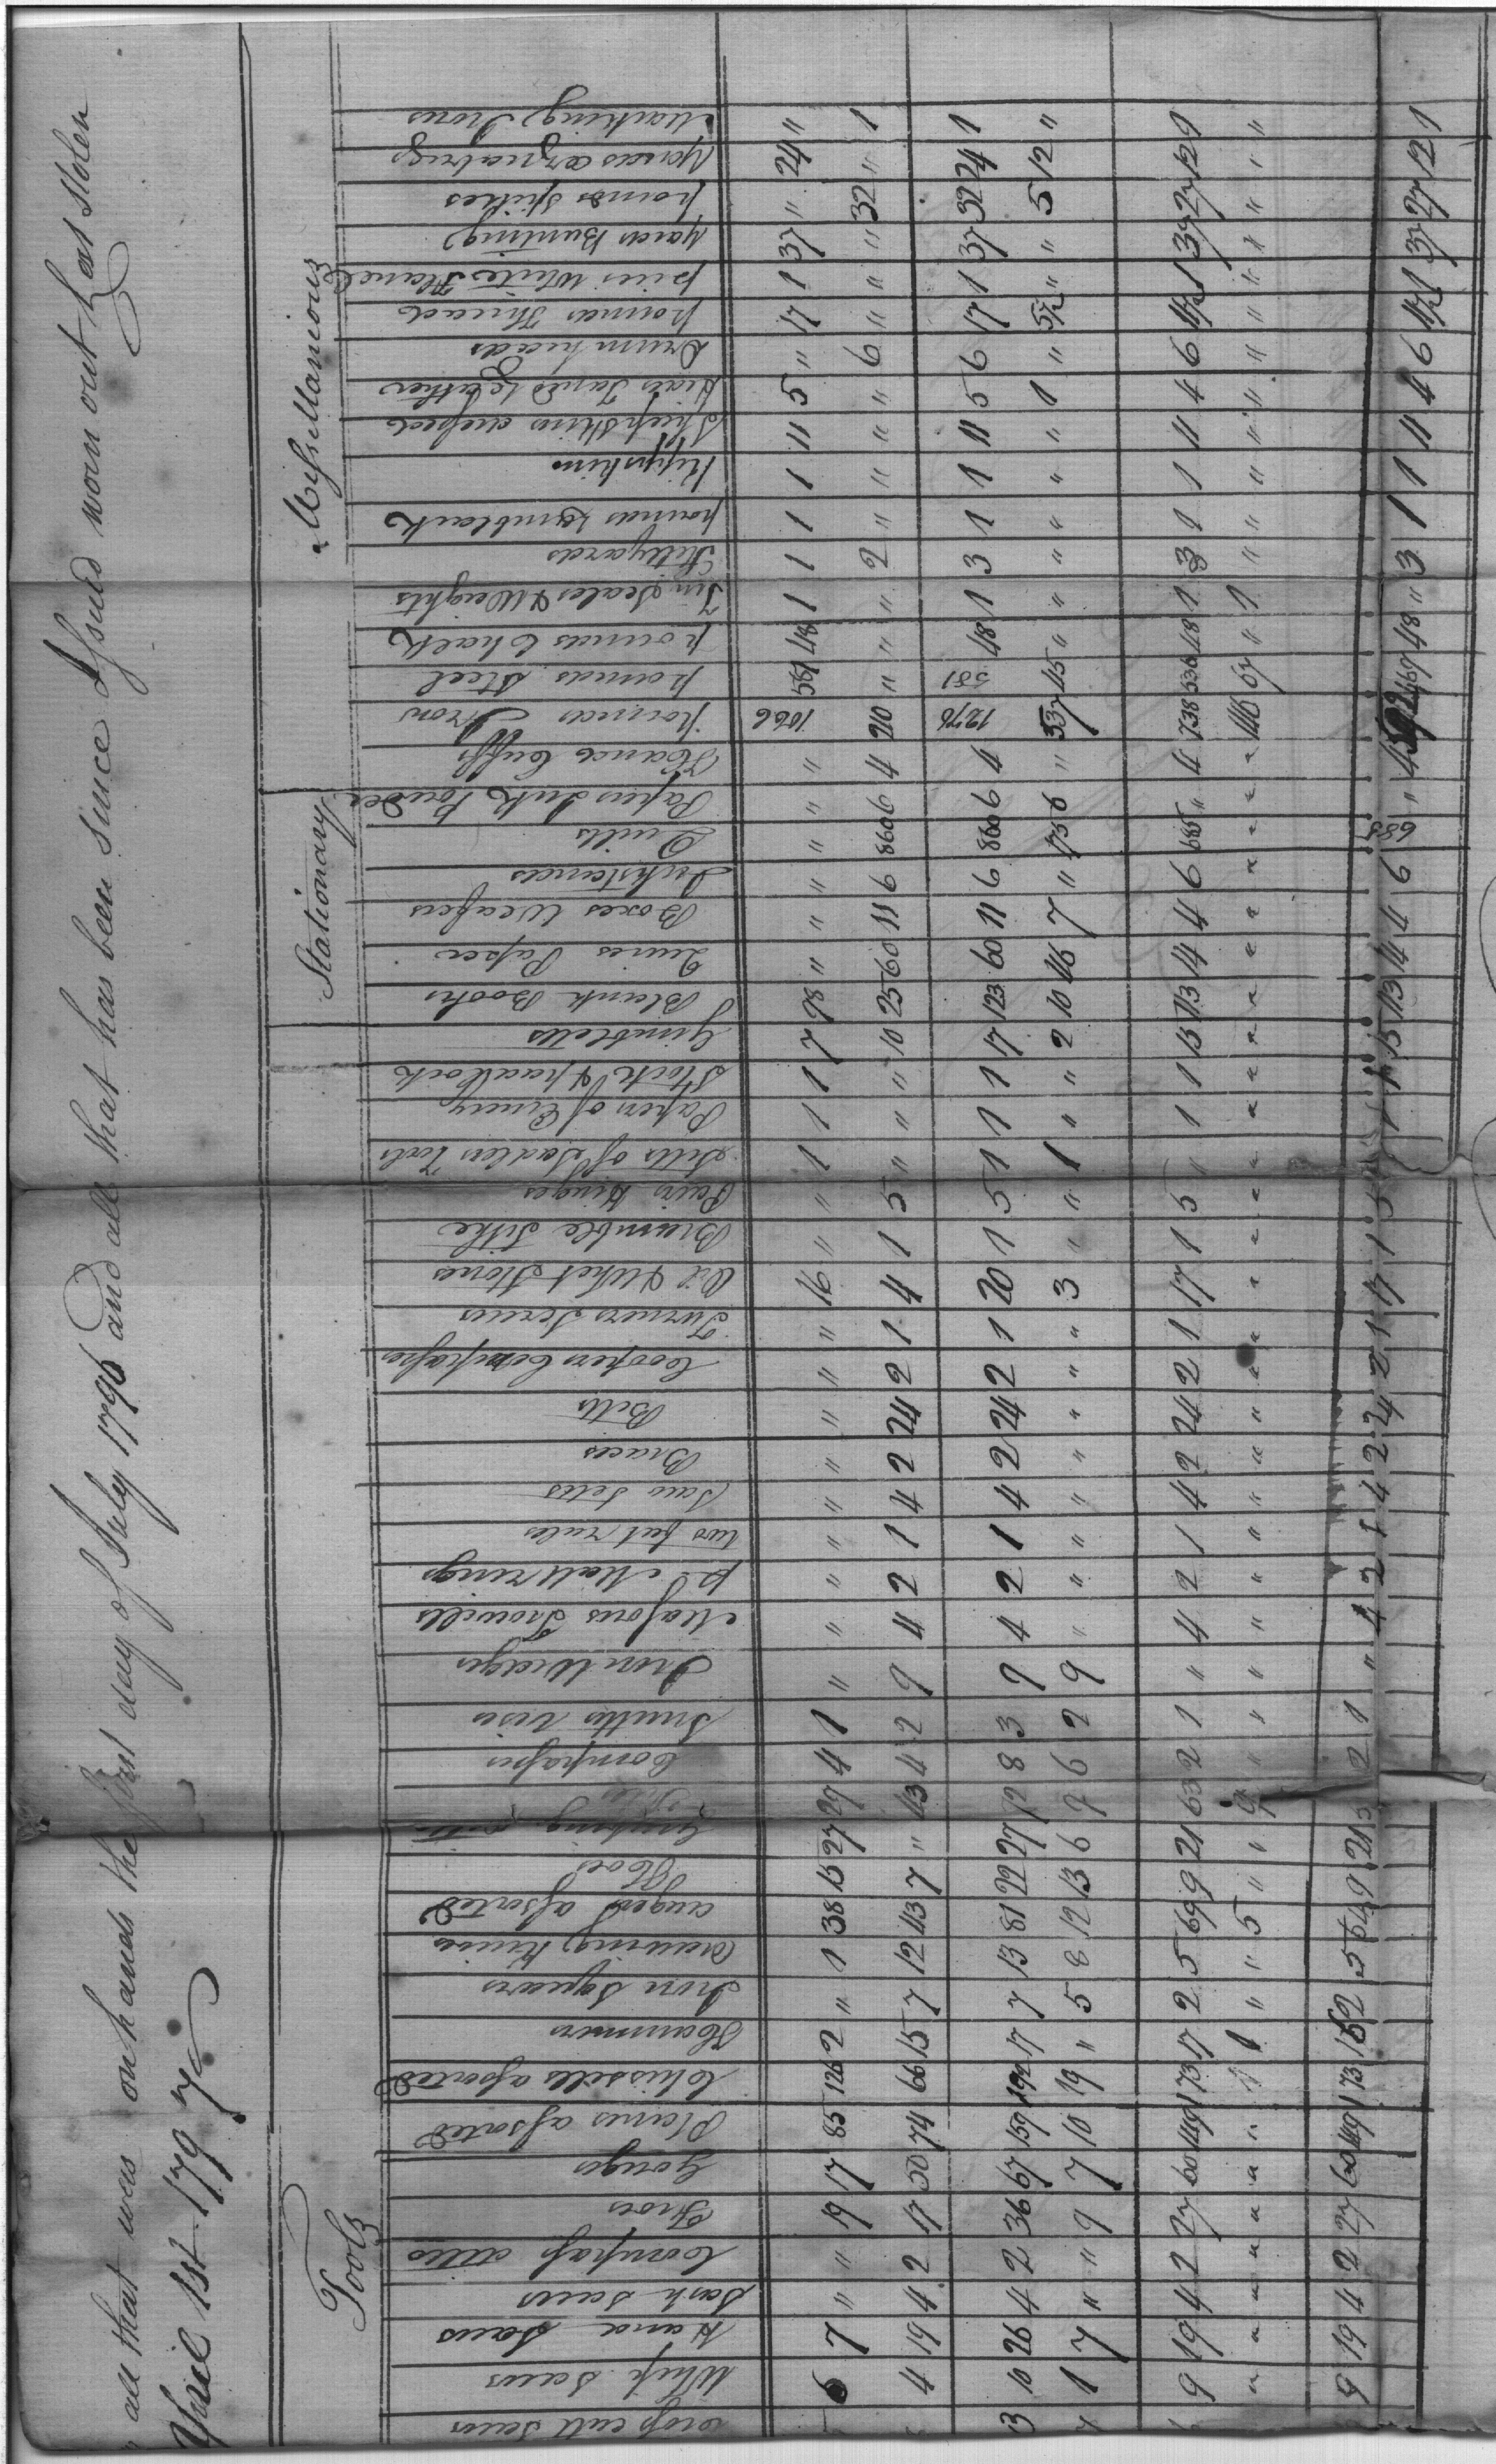 all that was on hands the first day of July 1796 and all that has been since Issued worn out Lost Stolen
April 1st 1797
Tools
Stationary
Missellanious
Crop cutt Saws
Whip Saws
Hand Saws
Sash Saws
Compass ditto
Frows
Gouges
Planes assorted
Chissells assorted
Hammers
Iron Squares
Drawing Knives
augers assorted
Hoes
Grubing
Files
Compasses
Smiths vises
Iron Wedges
Masons Trowells
pr Maul rings
two feet rules
Saw Setts
Braces
Bitts
Coopers Compasses
Turners Screws
Oil & Whet Stones
Bramble Sithe
Pairs Hinges
Setts of Sadlers Tools
Papers of Emery
Stock & padlock
Gimbletts
Blank Books
Quires Paper
Boxes Weafers
Inkstands
Quills
Papers Ink Powder
Hand Cuffs
pounds Iron
pounds Steel
pounds Chalk
Tin Scales & Weights
Stillyards
pounds Lamblack
Kippskins
Sheepskins dressed
Hides Tand Leather
Drum heads
pounds Thread
piece White Flanel
Yards Bunting
pounds spikes
Yards oznabrigs
Marking Irons
6 7 " " 19 17 85 126 2 " 1 38 15 27 27 4 1 " " " " " " " " " 16 " " 1 1 1 7 98 " " " " " " 1066 581 48 1 1 1 1 11 5 " 17 1 37 " 24 "
4 19 4 2 17 50 74 66 15 7 12 43 7 " 43 4 2 9 4 2 1 4 2 24 2 1 4 1 5 " " " 10 25 60 11 6 860 6 4 210 " " " 2 " " " " 6 " " " 32 " 1
13 10 26 4 2 36 67 159 192 17 7 13 81 22 27 72 8 3 9 4 2 1 4 2 24 2 1 20 1 5 1 1 1 17 123 60 11 6 860 6 4 1276 581 48 1 3 1 1 11 5 6 17 1 37 32 24 1
7 1 7 " " 9 7 10 19 " 5 8 12 13 6 7 6 2 9 " " " " " " " " 3 " " 1 " " 2 10 46 7 " 175 6 " 537 45 " " " " " " 1 " 5½ " " 5 12 "
9 19 4 2 27 60 149 173 17 2 5 69 9 21 63 2 1 " 4 2 1 4 2 24 2 1 17 1 5 " 1 1 15 113 14 4 6 685 " 4 738 536 48 1 3 1 1 11 4 6 11½ 1 37 27 12 1
" " " " " " " " 1 " " 5 " " 9 " " " " " " " " " " " " " " " " " " " " " " " " " 146 67 " 1 " " " " " " " " " " " "
9 19 4 2 27 60 149 173 16 2 5 64 9 21 2 1 " 4 2 1 4 2 24 2 1 17 1 5 1 1 15 113 14 4 6 685 " 4 592 469 48 " 3 1 1 11 4 6 11½ 1 37 27 12 1